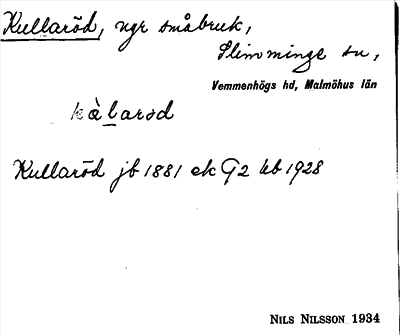 Kullaröd, ngr småbruk,
Slimminge sn,
Vemmenhögs hd, Malmöhus län
kàlarod
Kullaröd jb 1881 ek G2 kb 1928
NILS NILSSON 1934